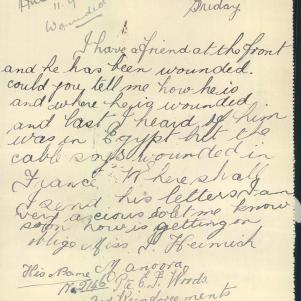 Friday
Wounded
I have a friend at the front
and he has been wounded.
could you tell me how he is
and where he is wounded
and last I heard of him
was in Egypt but the
cable says wounded in
France. Where shall
I send his letters I am
very anxious so let me know
soon how is getting on
oblige Miss J
His Name Manoora
No 2746 Pte E. J. Woods
2nd Reinforcements